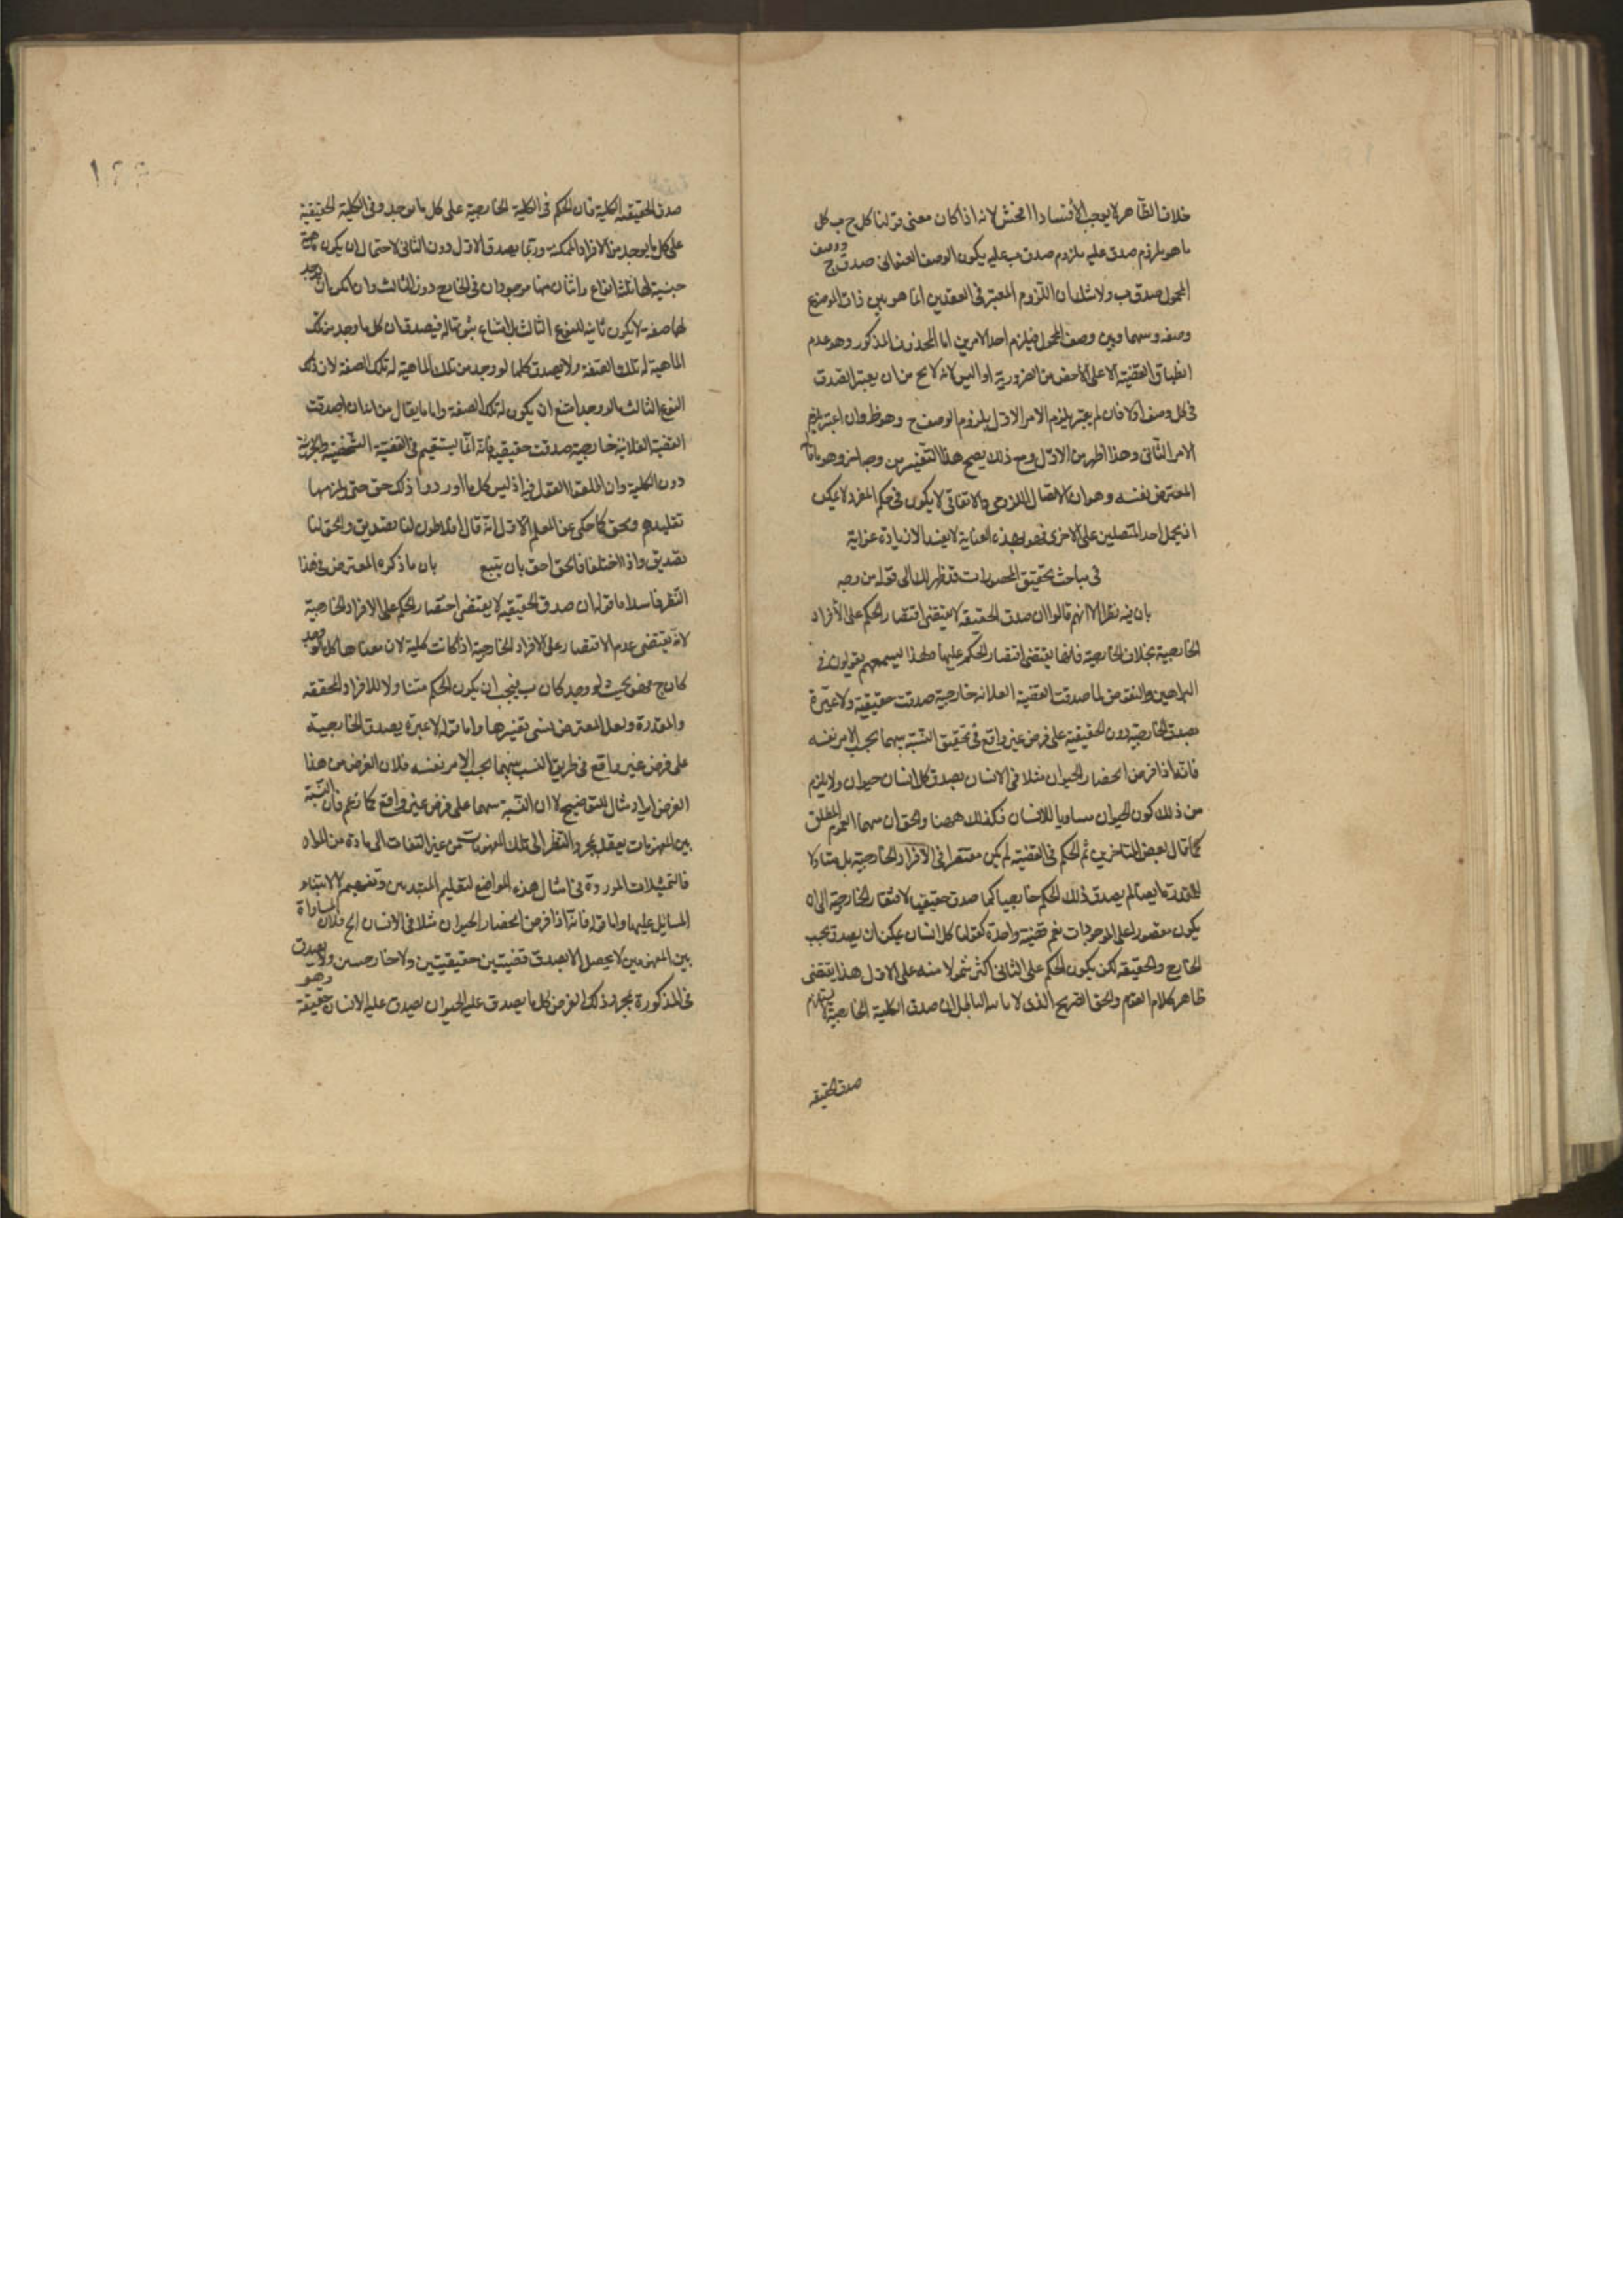 خلاف الظاهر لا يوجب الا فسادا افحش لانه اذا كان معنى قولنا كل ج ب كل
ما هو ملزوم صدق عليه ملزوم صدق ب عليه يكون الوصف العنوانى صدق ج ووصف
المحمول صدق ب ولا شك ان اللزوم المعتبر فى العقدين انما هو بين ذات الموضوع
وصفه وبينها وبين وصف المحمول فيلزم احد الامرين اما المحذور المذكور وهو عدم
انطباق القضية الا على الاخص من الضرورية او التس لانه لا يخ من ان يعتبر الصدق
فى كل وصف اولا فان لم يعتبر يلزم الامر الاول بلزوم الوصف ح وهو ظ وان اعتبر يلزم
الامر الثانى وهذا اظهر من الاول ومع ذلك يصح هذا التفسير من وجه اخر وهو
المعترض نفسه وهو ان الاتصال اللزومى والاتفاقى لا يكون فى حكم المفرد لا يمكن
ان يحمل احد المتصلين على الاخرى فهو بهذه العناية لا يفيد الا زيادة غواية
فى مباحث تحقيق المحصورات قد ظهر لك الى قوله من وجه
بان فيه نظرا لانهم قالوا ان صدق الحقيقية لا يقتضى اقتصار الحكم على الأفراد
الخارجية بخلاف الخارجية فانها يقتضى اقتصار الحكم عليها ولهذا ليسمعهم يقولون فى
البراهين والنقوض لما صدقت القضية الفلانية خارجية صدقت حقيقية ولا عبرة
بصدق الخارجية دون الحقيقية على فرض غير واقع فى تحقيق النسبة بينهما بحسب الامر نفسه
فانه اذا فرض انحصار الحيوان مثلا فى الانسان يصدق كل انسان حيوان ولا يلزم
من ذلك كون الحيوان مساويا للانسان فكذلك ههنا والحق ان بينهما العموم المطلق
كما قال بعض المتاخرين ثم الحكم فى القضية لم يكن مقتصرا فى الافراد الخارجية بل متناولا
للمقدرة ايضا لم يصدق ذلك الحكم خارجيا كما صدق حقيقيا لافتقار الخارجية الى ان
يكون مقصورا على الموجودات نعم قضية واحدة كقولنا كل انسان يمكن ان يصدق بحسب
الخارج والحقيقة لكن يكون الحكم على الثانى اكثر شمولا منه على الاول هذا يقتضى
ظاهر كلام القوم والحق الصريح الذى لا ياتيه الباطل ان صدق الكلية الخارجية لا يستلزم
صدق الحقيقية
صدق الحقيقية الكلية فان الحكم فى الكلية الخارجية على كل ما يوجد وفى الكلية الحقيقية
على كل ما يوجد من الافراد الممكنة وربما يصدق الاول دون الثانى لاحتمال ان يكون ماهية
جنسية لها ثلثة انواع واثنان منها موجودان فى الخارج دون الثالث وان امكن ان يوجد
لها صفة لا يكون ثابتة للنوع الثالث بل امتناع ثبوتها له فيصدق ان كل ما وجد من تلك
الماهية له تلك الصفة ولا يصدق كلما لو وجد من تلك الماهية له تلك الصفة لان ذلك
النوع الثالث ما لو وجد امتنع ان يكون له تلك الصفة واما ما يقال من انه ان صدقت
القضية الفلانية خارجية صدقت حقيقية فانه انما يستقيم فى القضية الشخصية والجزئية
دون الكلية وان اطلقوا القول فيه اذ ليس كل ما اوردوا ذلك حق حتى يلزمها
تقليدهم ونحن كما حكى عن المعلم الاول انه قال افلاطون لنا صديق والحق لنا
صديق واذا اختلفا فالحق احق بان يتبع بان ما ذكره المعترض فى هذا
النظر فاسد اما قوله ان صدق الحقيقية لا يقتضى اقتصار الحكم على الافراد الخارجية
لانه يقتضى عدم الاقتصار على الافراد الخارجية اذا كانت كلية لان معناها كل ما لو وجد
كان ج فهو بحيث لو وجد كان ب فيجب ان يكون الحكم متناولا للافراد المحققة
والمقدرة ولعل المعترض نسى تفسيرها واما قوله لا عبرة بصدق الخارجية
على فرض غير واقع فى طريق النسب بينهما بحسب الامر نفسه فلان الغرض من هذا
الفرض ايراد مثال للتوضيح لا ان النسبة بينهما على فرض غير واقع كما زعم فان النسبة
بين المفهومات يعقل بمجرد النظر الى تلك المفهومات من غير التفات الى مادة من المواد
فالتمثيلات الموردة فى امثال هذه المواضع لتعليم المبتدئين وتفهيمهم لا لابتناء
المسائل عليها واما قوله فانه اذا فرض انحصار الحيوان مثلا فى الانسان الخ فلان المساواة
بين المفهومين لا يحصل الا بصدق قضيتين حقيقيتين ولا خارجيتين ولا يصدق
فى المذكورة بمجرد ذلك الفرض كل ما يصدق عليه الحيوان يصدق عليه الانسان حقيقة وهو